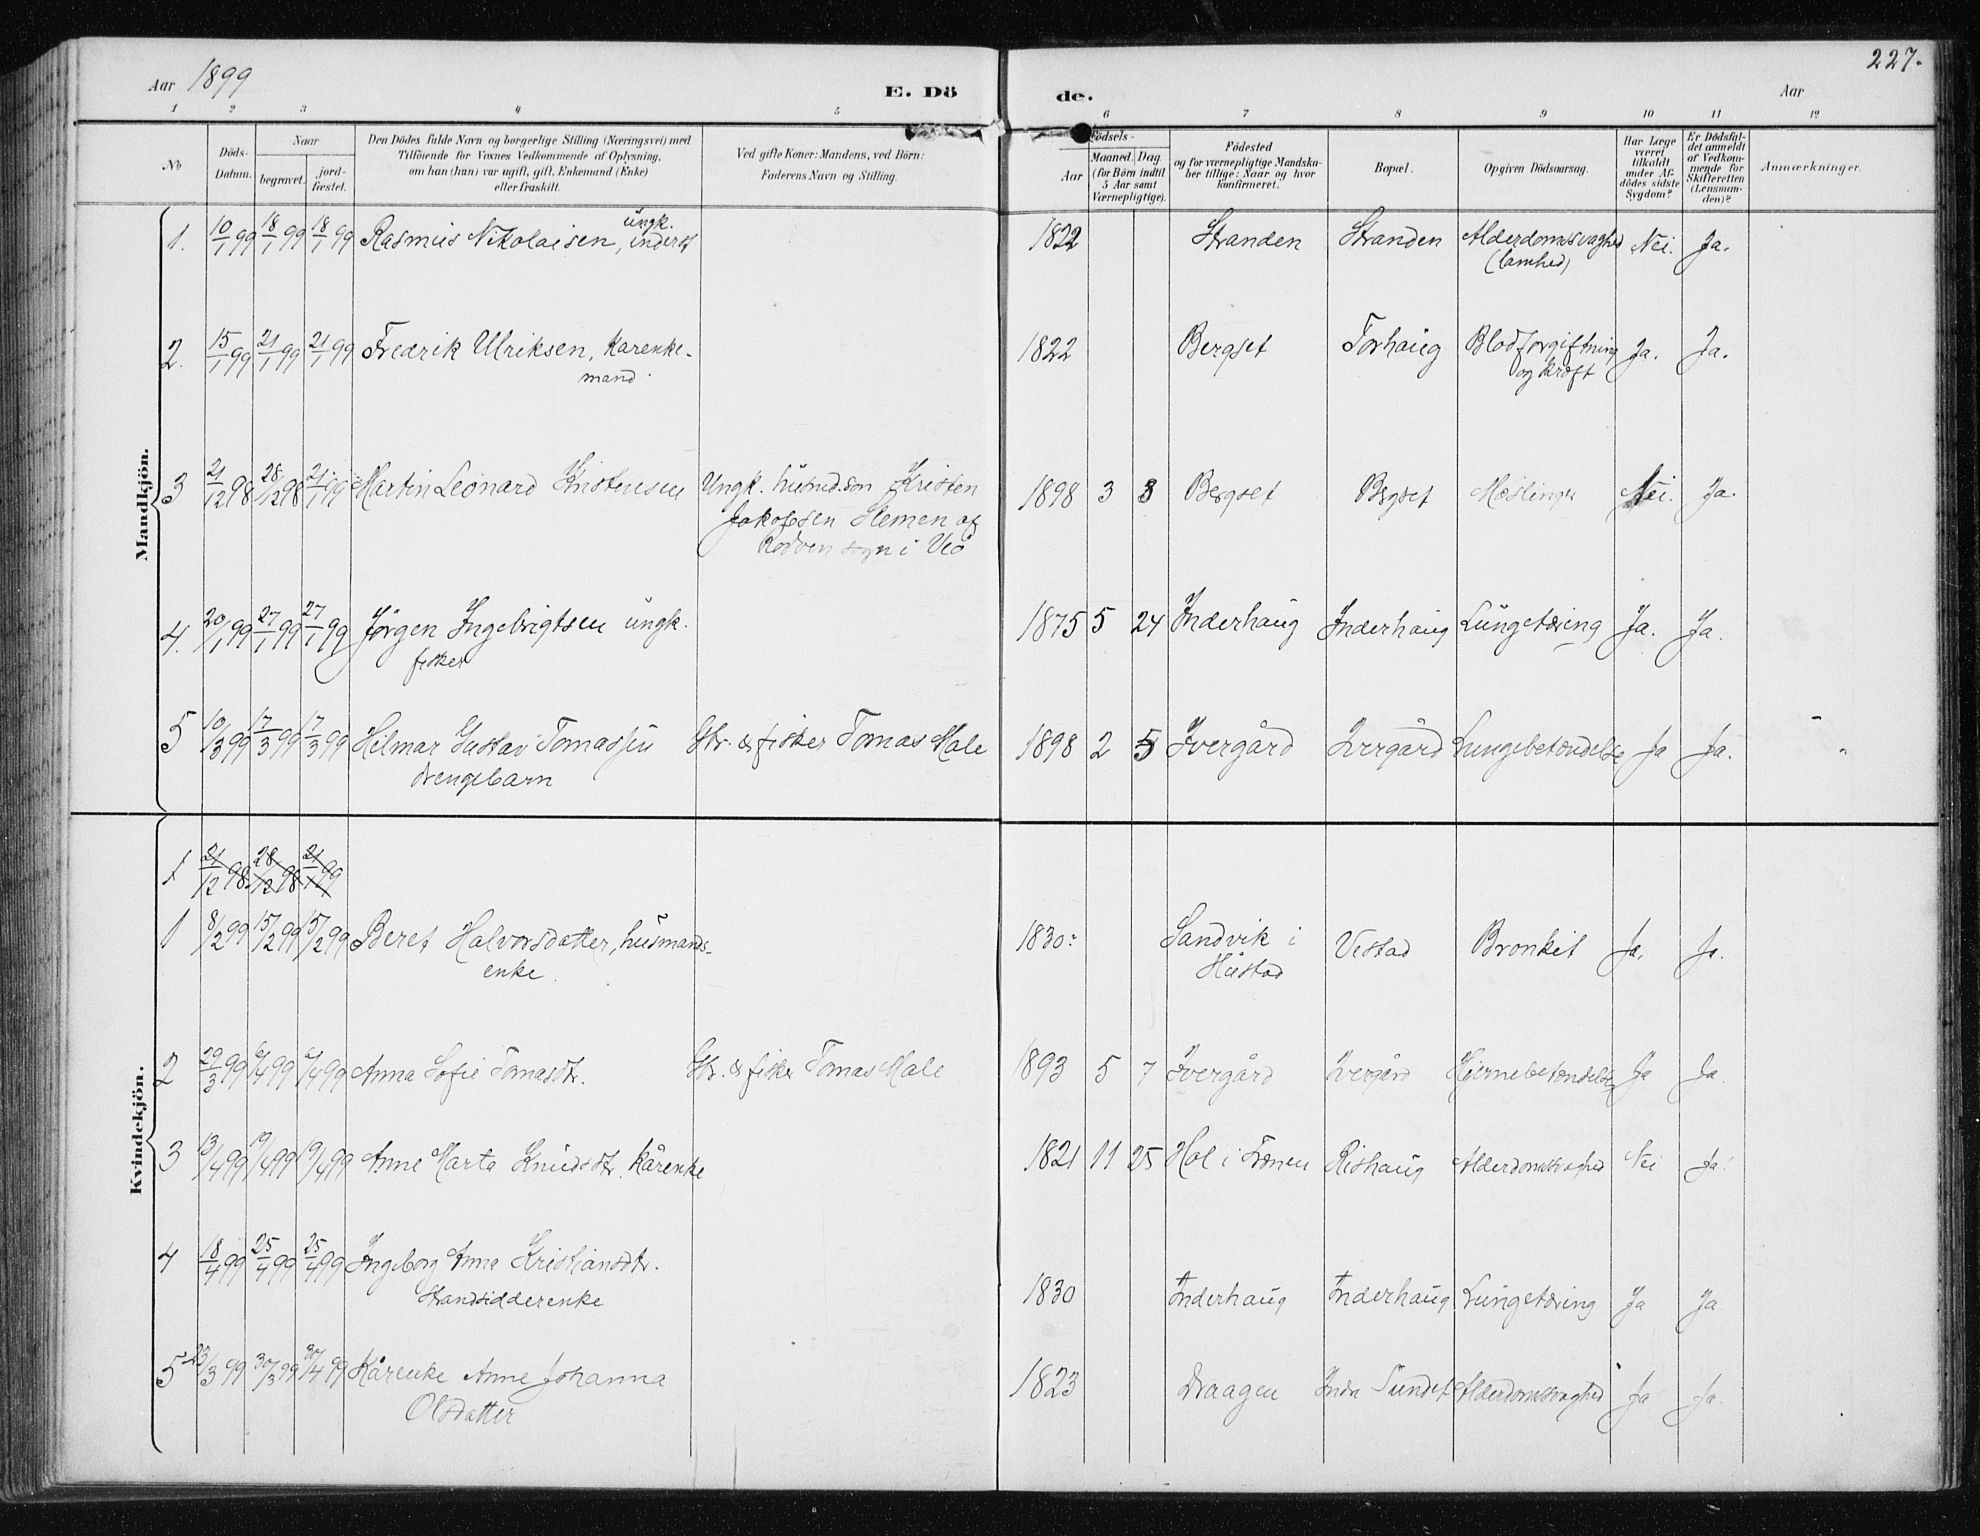 Aar 1899
E. Dö
de.
227.
Aar
1 2 3 4 5 6 7 8 9 10 11 12
No
Döds-
Datum.
Naar
begravet.
jord-
fæstet.
Den Dödes fulde Navn og borgerlige Stilling (Næringsvei) med
Tilföiende for Voxnes Vedkommende af Oplysning,
om han (hun) var ugift, gift, Enkemand (Enke)
eller fraskilt.
Ved gifte Koner: Mandens, ved Börn:
Faderens Navn og Stilling.
Födsels-
Aar
Maaned. Dag.
(for Börn indtil
5 Aar samt
Værnepligtige).
Födested
og for værnepligtige Mandska-
ber tillige: Naar og hvor
konfirmeret.
Bopæl.
Opgiven Dödsaarsag.
Har Læge
været
tilkaldt
under Af-
dödes sidste
Sygdom?
Er Dödsfal-
det anmeldt
af Vedkom-
mende for
Skifteretten
(Lensman-
den)?
Anmærkninger.
Mandkjön.
ungk.
1. 10/1 99 18/1 99 18/1 99 Rasmus Nikolaisen, inderst 1822 Stranden Stranden Alderdomssvaghed Nei. Ja.
(lamhed)
2. 15/1 99 21/1 99 21/1 99 Fredrik Ulriksen, Karenke- 1822 Bergset Torhaug Blodforgiftning Ja. Ja.
mand. og kræft
3 21/12 98 28/12 98 21/1 99 Martin Leonard Kristensen Ungk. husmd.søn Kristen 1898 3 3 Bergset Bergset Meslinger Nei. Ja.
Jakobsen Hemen af
Rødven sogn i Veø
4. 20/1 99 27/1 99 27/1 99 Jørgen Ingebrigtsen ungk. 1875 5 24 Inderhaug Inderhaug Lungetæring Ja. Ja.
fisker
5 10/3 99 17/3 99 17/3 99 Hilmar Gustav Tomassen Str. & fisker Tomas Male 1898 2 5 Ivergård Ivergård Lungebetændelse Ja Ja. "
drengebarn
Kvindekjön.
1 21/12 98 28/12 98 21/1 99
1 8/2 99 15/2 99 15/2 99 Beret Halvorsdatter, husmands- 1830 Sandvik i Vestad Bronkit Ja. Ja.
enke. Hustad
2 29/3 99 6/4 99 6/4 99 Anna Sofie Tomasdtr. Str. & fisker Tomas Male 1893 5 7 Ivergård Ivergård Hjernebetændelse Ja Ja.
3 13/4 99 19/4 99 19/4 99 Anne Marta Knudsdtr. kårenke 1821 11 25 Hol i Frænen Rishaug Alderdomssvaghed Nei Ja.
4 18/4 99 25/4 99 25/4 99 Ingeborg Anna Kristiansdtr.
Strandsidderenke 1830 Inderhaug Inderhaug Lungetæring Ja Ja
5 23/3 99 30/3 99 30/4 99 Kårenke Anne Johanna 1823 Draagen Indre Sundet Alderdomssvaghed Ja Ja.
Olsdatter